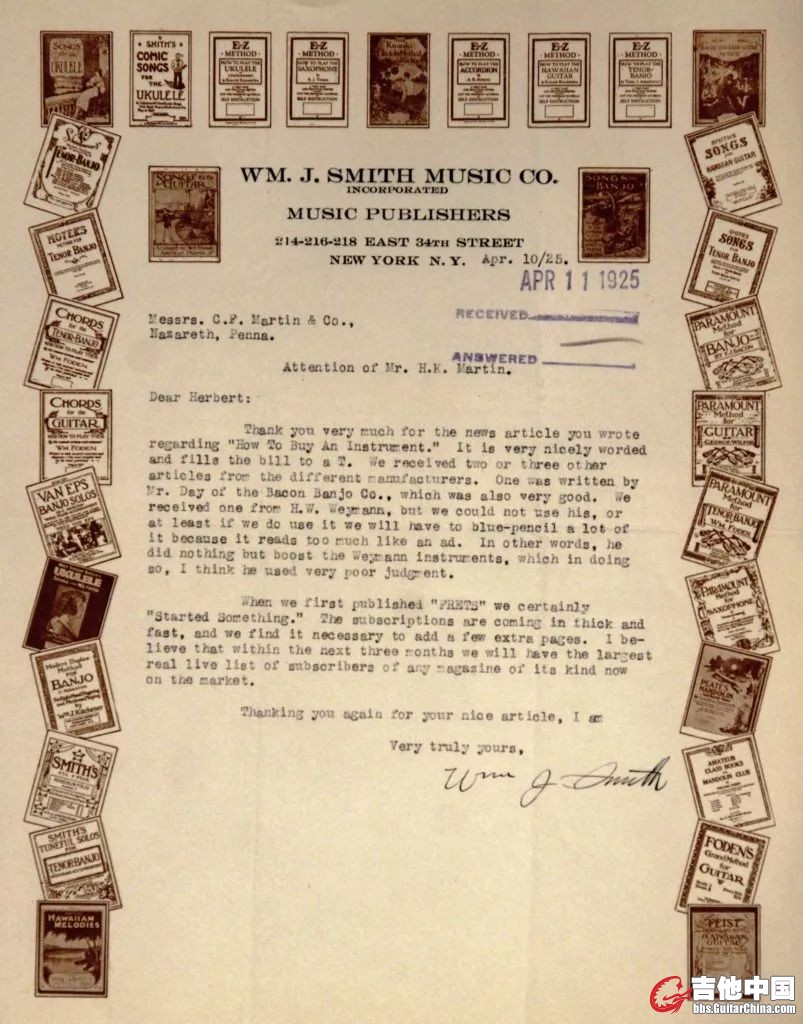 SONGS
UKULELE
SMITH'S
COMIC
SONGS
FOR THE
UKULELE
E-Z
METHOD
HOW TO PLAY THE
UKULELE
SELF INSTRUCTION
E-Z
METHOD
HOW TO PLAY THE
SAXOPHONE
SELF INSTRUCTION
E-Z
METHOD
HOW TO PLAY THE
ACCORDION
SELF INSTRUCTION
E-Z
METHOD
HOW TO PLAY THE
HAWAIIAN
GUITAR
SELF INSTRUCTION
E-Z
METHOD
HOW TO PLAY THE
TENOR-
BANJO
SELF INSTRUCTION
TENOR-BANJO
METHOD FOR
TENOR BANJO
CHORDS
for the
TENOR-BANJO
AND HOW TO PLAY THEM
WM. FODEN
CHORDS
CHORDS
for the
GUITAR
AND HOW TO PLAY THEM
WM. FODEN
VAN EPS
BANJO SOLOS
UKULELE
Method
FOR
BANJO
by
SMITH'S
SMITH'S
TUNEFUL SOLOS
FOR
TENOR BANJO
HAWAIIAN
MELODIES
SONGS for the
GUITAR
WM. J. SMITH MUSIC CO.
INCORPORATED
MUSIC PUBLISHERS
214-216-218 EAST 34TH STREET
NEW YORK N. Y. Apr. 10/25.
SONGS for the
BANJO
APR 11 1925
RECEIVED
ANSWERED
Messrs. C.F. Martin & Co.,
Nazareth, Penna.
Attention of Mr. H.K. Martin.
Dear Herbert:
Thank you very much for the news article you wrote
regarding "How To Buy An Instrument." It is very nicely worded
and fills the bill to a T. We received two or three other
articles from the different manufacturers. One was written by
Mr. Day of the Bacon Banjo Co., which was also very good. We
received one from H.W. Weymann, but we could not use his, or
at least if we do use it we will have to blue-pencil a lot of
it because it reads too much like an ad. In other words, he
did nothing but boost the Weymann instruments, which in doing
so, I think he used very poor judgment.
When we first published "FRETS" we certainly
"Started Something." The subscriptions are coming in thick and
fast, and we find it necessary to add a few extra pages. I be-
lieve that within the next three months we will have the largest
real live list of subscribers of any magazine of its kind now
on the market.
Thanking you again for your nice article, I am
Very truly yours,
Wm J. Smith
SMITH'S
SONGS
for
HAWAIIAN GUITAR
SMITH'S
SONGS
for
TENOR BANJO
PARAMOUNT
Method
for
BANJO
BY F.J. BACON
PARAMOUNT
Method
for
GUITAR
PARAMOUNT
Method
for
TENOR BANJO
by
WM. FODEN
PARAMOUNT
Method
for
SAXOPHONE
MANDOLIN
AMATEUR
CLASS BOOKS
for
MANDOLIN CLUB
FODEN'S
Grand Method
for
GUITAR
HAWAIIAN
GUITAR
吉他中国
bbs.GuitarChina.com